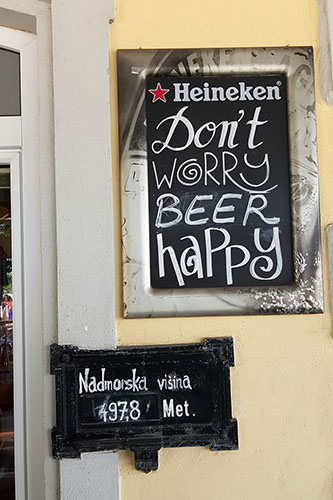 Heineken
Don't
WORRY
BEER
happy
Nadmorska višina
497,8 Met.